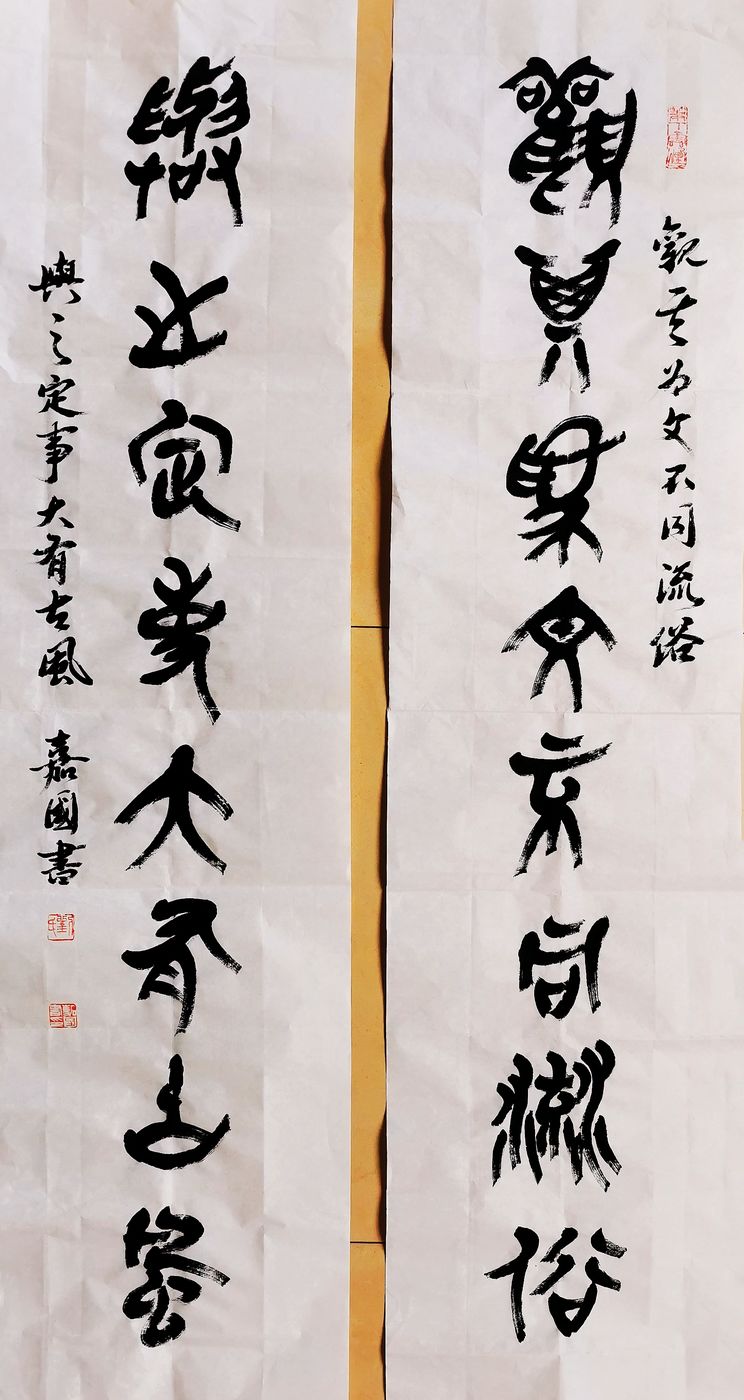 觀其為文不同流俗
观其为文不同流俗
與之定事大有古風
與之定事大有古風
嘉國書